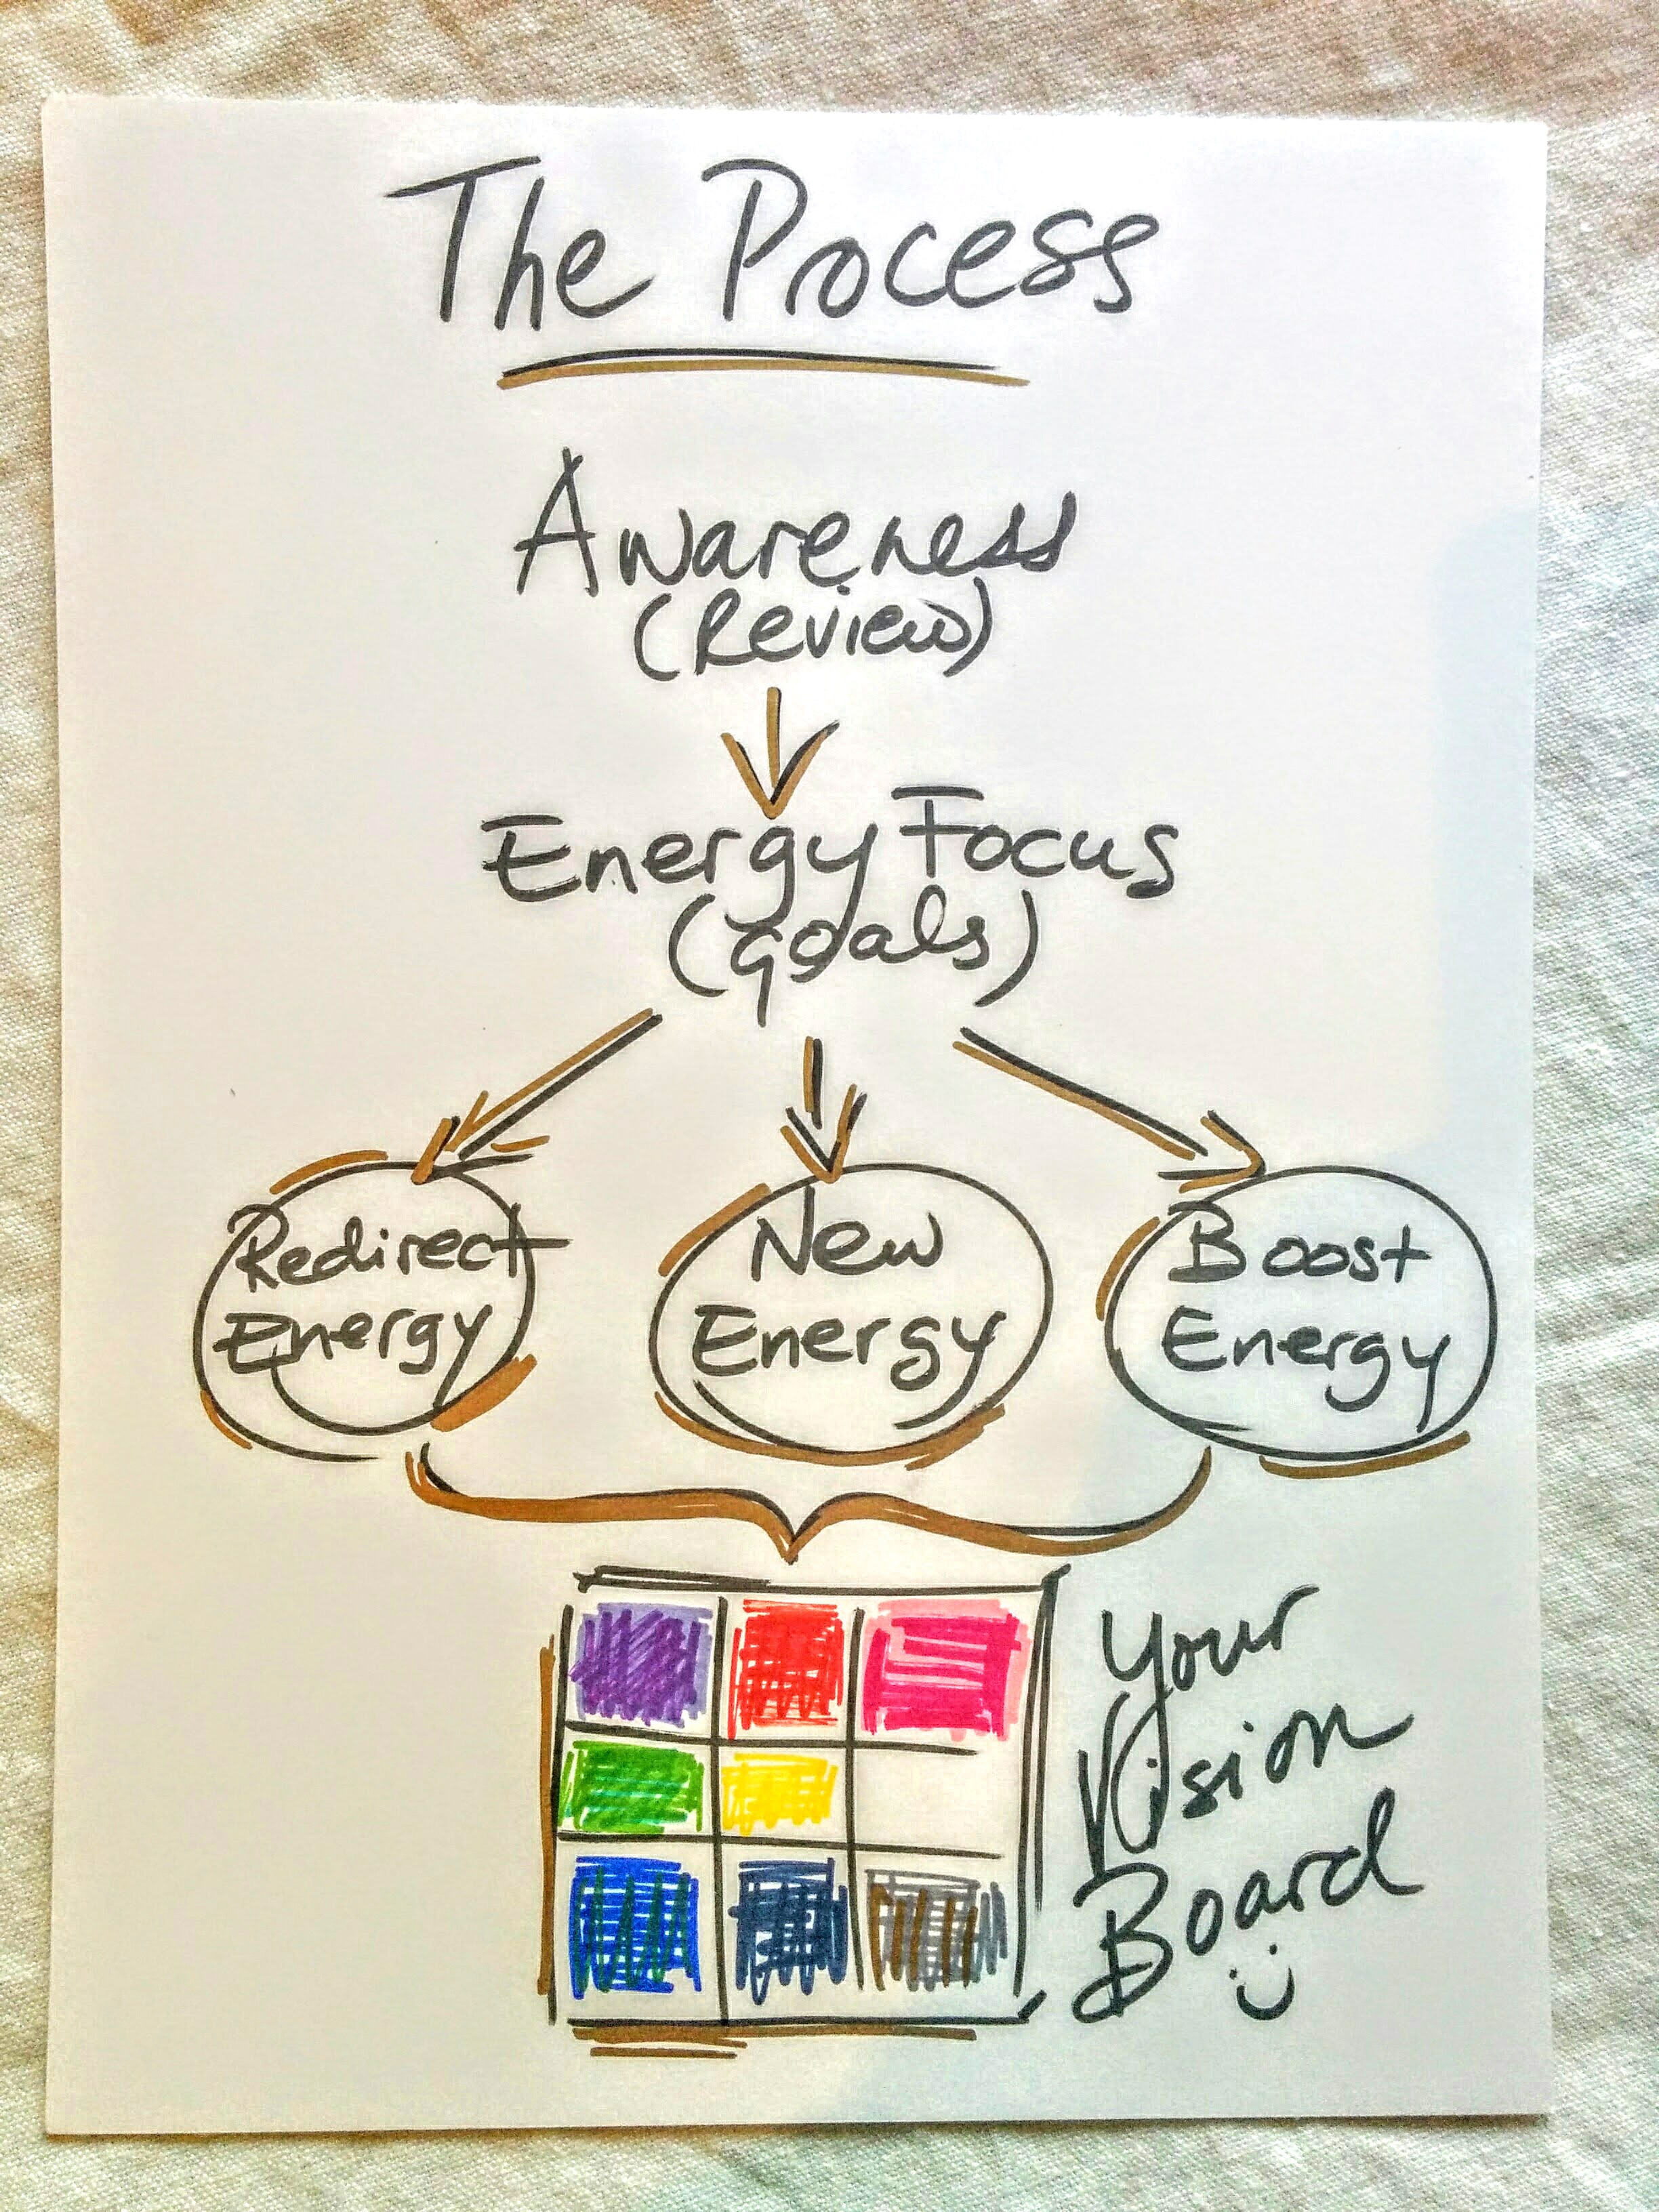 The Process
Awareness
(Review)
Energy Focus
(goals)
Redirect
Energy
New
Energy
Boost
Energy
Your
Vision
Board